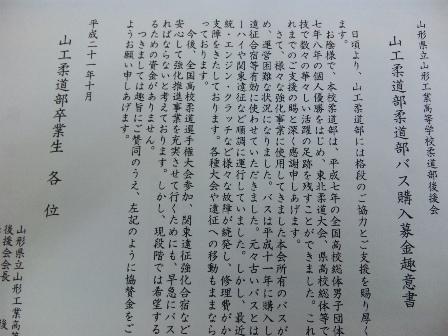 山形県立山形工業高等学校柔道部後後会
山工柔道部柔道部バス購入募金趣意書
日頃より、山工柔道部には格段のご協力とご支援を賜り厚く
ます。
お陰様で、本校柔道部は、平成七年の全国高校総体男子団
七年八年の個人優勝をはじめ、東北柔道大会、県高校総体等で
技で数々の華々しい活躍の足跡を残すことができました。これ
れまでのご支援の賜と深く感謝申しあげます。
さて、様々な強化事業に使用してきました本会所有のバスが
め、運営困難な状況になりました。バスは平成十一年に購入し
遠征合宿に有効に使わせていただきました。元々古いバスとは
ーハイや関東遠征など順調に運行していました。しかし、最近
統・エンジン・クラッチなど様々な故障が続発し、修理費がか
支障をきたしております。各種大会や遠征への移動もままなら
っております。
今後、全国高校柔道選手権大会参加、関東遠征強化合宿など
安心して強化推進事業を充実させて行くためにも、早急にバス
ればならないと考えております。しかし、現段階では希望する
るための資金がありません。
つきましては趣旨にご賛同のうえ、左記のように協賛金をご
ようお願い申しあげます。
平成二十一年十月
山工柔道部卒業生 各位
山形県立山形工業高
後援会会長